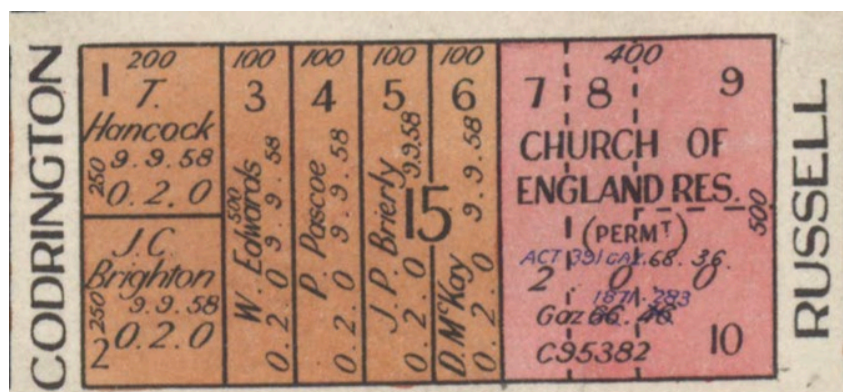 CODRINGTON
200
1
T.
Hancock
9.9.58
250
0.2.0
J.C.
Brighton
9.9.58
250
0.2.0
2
100
3
W. Edwards
500
9.9.58
0.2.0
100
4
P. Pascoe
9.9.58
0.2.0
100
5
J.P. Brierly
9.9.58
0.2.0
100
6
D. McKay
9.9.58
0.2.0
15
400
7 8 9
CHURCH OF
ENGLAND RES.
(PERMT)
500
ACT 391 GAZ. 68. 36.
2 0 0
1871. 283
Gaz
C95382
10
RUSSELL